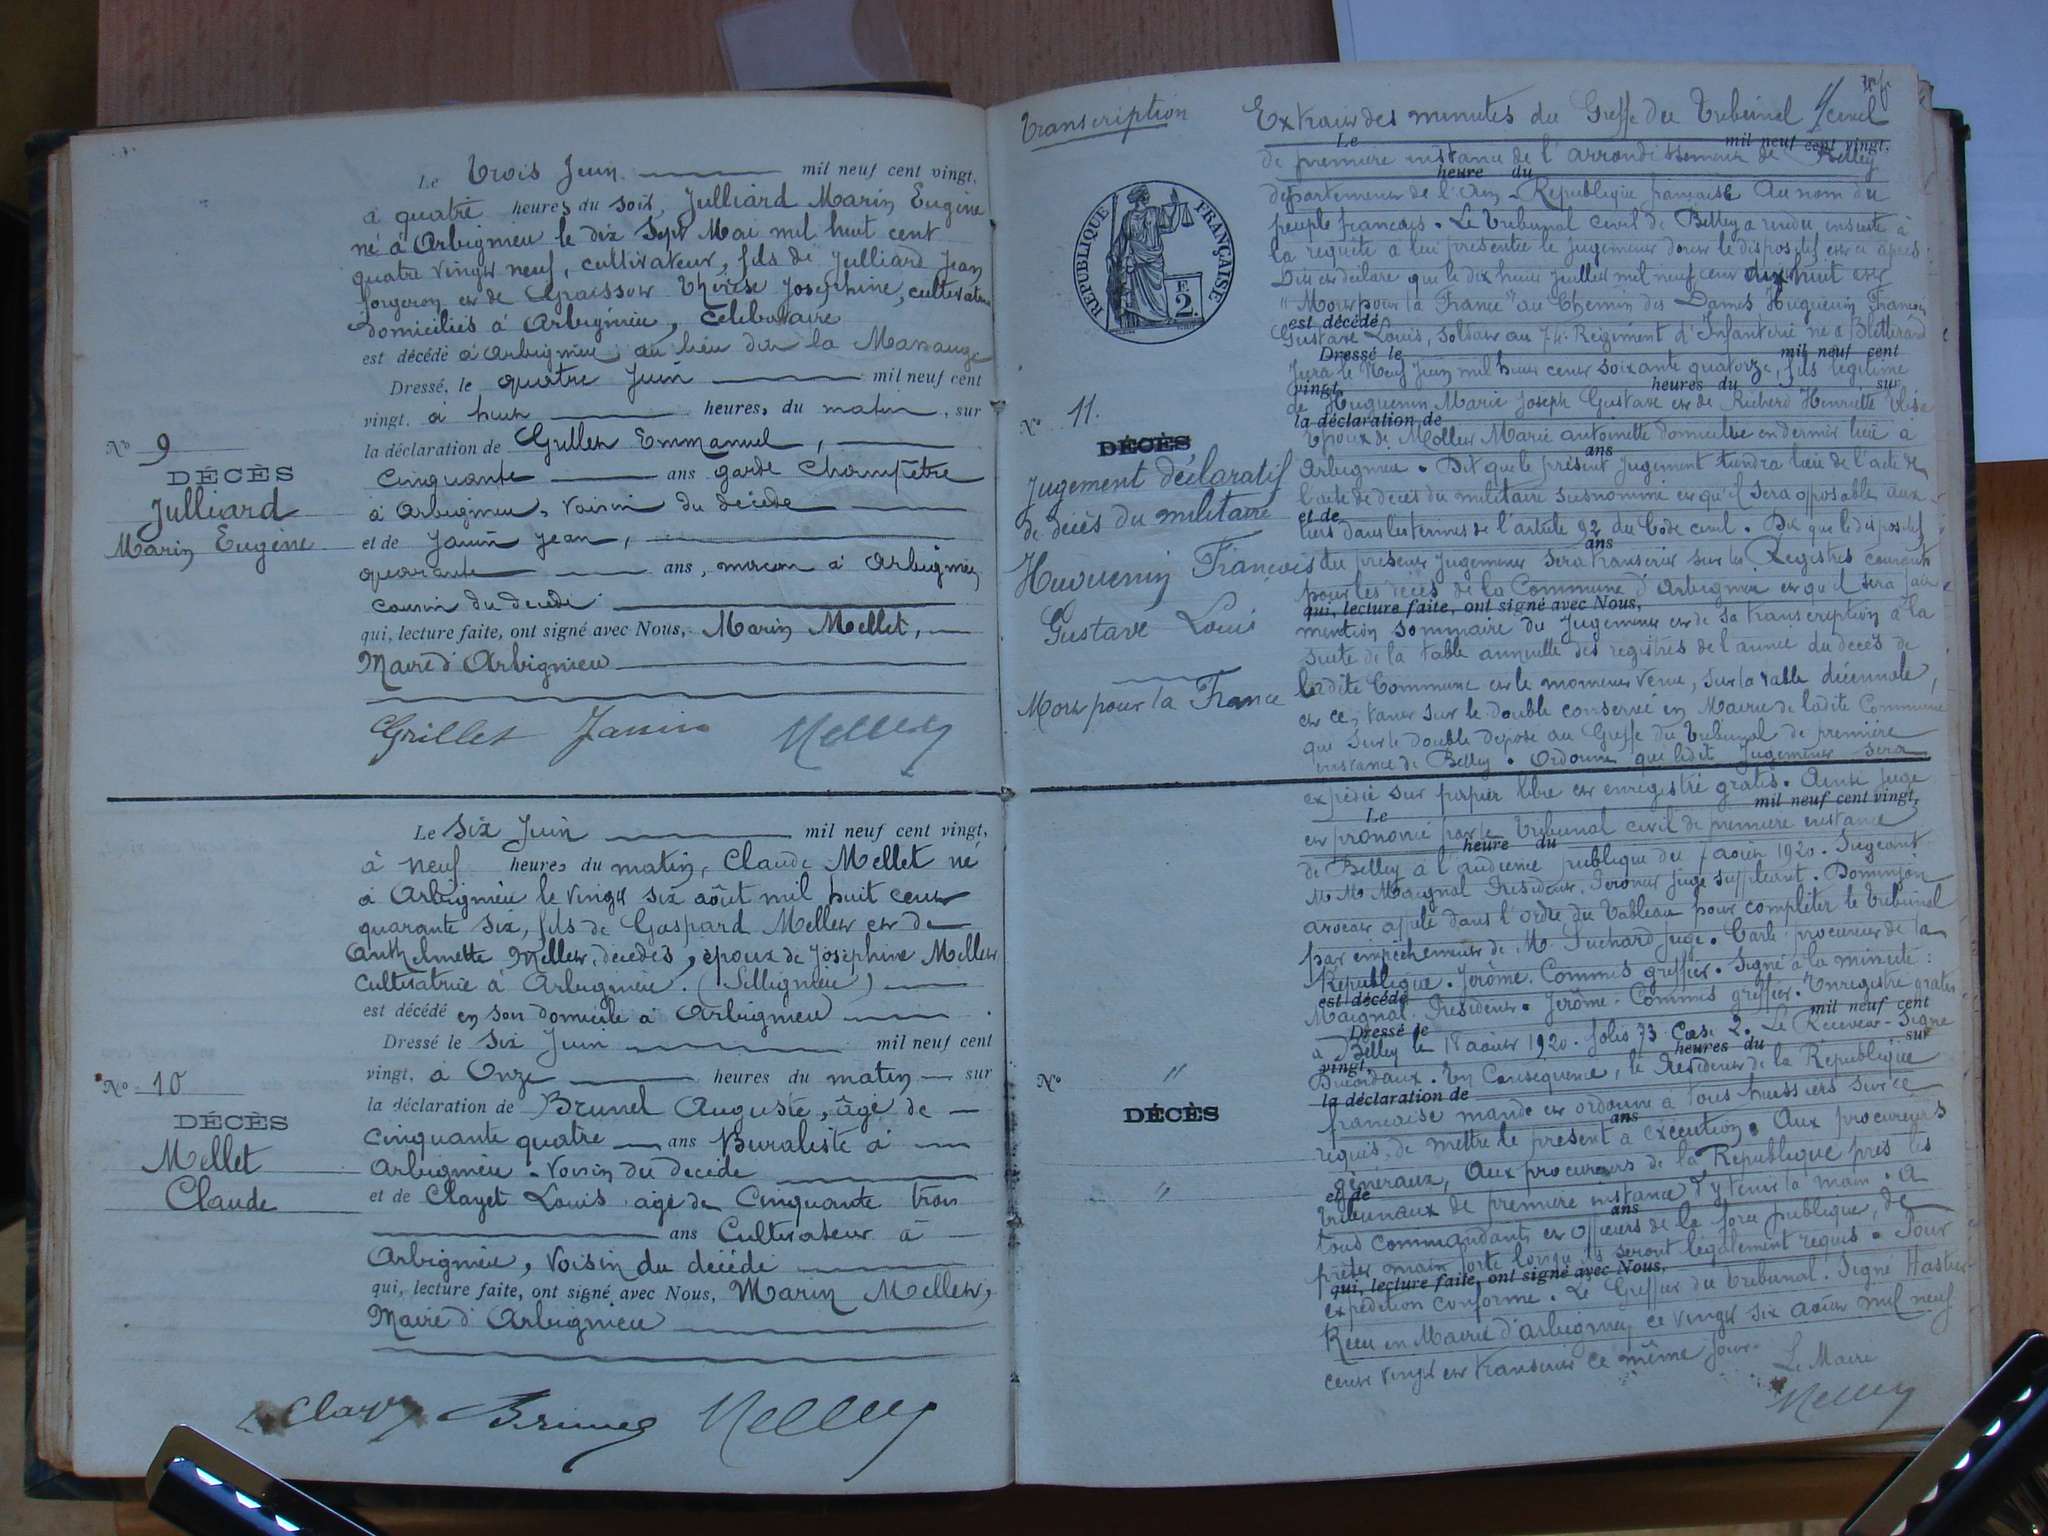 Le Trois Juin mil neuf cent vingt,
à quatre heures du soir, Julliard Marin Eugène
né à Arbignieu le dix Sept Mai mil huit cent
quatre vingt neuf, cultivateur, fils de Julliard Jean
forgeron et de Thérèse Josephine, cultivateurs
domiciliés à Arbignieu, Célibataire
est décédé à Arbignieu, au lieu dit la
Dressé, le quatre Juin mil neuf cent
vingt, à huit heures, du matin, sur
la déclaration de Grillet Emmanuel,
Cinquante ans garde Champêtre
à Arbignieu, voisin du décédé
N° 9
DÉCÈS
Julliard
Marin Eugène
et de Janin Jean,
quarante ans, maçon à Arbignieu,
cousin du décédé
qui, lecture faite, ont signé avec Nous, Marin Mellet,
Maire d'Arbignieu
Grillet Janin Mellet
Le Six Juin mil neuf cent vingt,
à neuf heures du matin, Claude Mellet né
à Arbignieu le vingt six août mil huit cent
quarante six, fils de Gaspard Mellet et de
Anthelmette Mellet, décédés, époux de Joséphine Mellet
Cultivatrice à Arbignieu. (Sillignieu)
est décédé en son domicile à Arbignieu
Dressé le Six Juin mil neuf cent
vingt, à Onze heures du matin sur
la déclaration de Brunel Auguste, âgé de
cinquante quatre ans Buraliste à
Arbignieu. Voisin du décédé
N° 10
DÉCÈS
Mellet
Claude
et de Clayet Louis âgé de Cinquante trois
ans Cultivateur à
Arbignieu, Voisin du décédé
qui, lecture faite, ont signé avec Nous, Marin Mellet,
Maire d'Arbignieu
Brunel Mellet
Transcription
RÉPUBLIQUE FRANÇAISE
2.
N° 11.
DÉCÈS
Jugement déclaratif
de décès du militaire
Huguenin François
Gustave Louis
Mort pour la France
Extrait des minutes du Greffe du Tribunal civil
Le mil neuf cent vingt,
de première instance de l'arrondissement de Belley
heure du
département de l'Ain. République française Au nom du
peuple français. Le Tribunal civil de Belley a rendu ensuite à
la requête à lui présentée le jugement dont le dispositif est ci après
Dit et déclare que le dix huit Juillet mil neuf cent dix huit est
"Mort pour la France" au Chemin des Dames Huguenin François
est décédé
Gustave Louis, soldat au 74. Régiment d'Infanterie né à Bletterans
Dressé le mil neuf cent
Jura le Neuf Juin mil huit cent soixante quatorze, fils légitime
vingt, heures du sur
de Huguenin Marie Joseph Gustave et de Richerd Henriette Elisa
la déclaration de
Epoux de Mollet Marie Antoinette domicilié en dernier lieu à
ans
Arbignieu. Dit que le présent Jugement tiendra lieu de l'acte de
l'acte de décès du militaire susnommé et qu'il sera opposable aux
et de
tiers dans les termes de l'article 92 du Code civil. Dit que le dispositif
ans
du présent Jugement sera transcrit sur les Registres courants
pour les décès de la Commune d'Arbignieu et qu'il sera fait
qui, lecture faite, ont signé avec Nous,
mention sommaire du Jugement et de sa transcription à la
suite de la table annuelle des registres de l'année du décès de
ladite Commune et le moment venu, sur la table décennale,
et ce, tant sur le double conservé en Mairie de ladite Commune
que sur le double déposé au Greffe du Tribunal de première
instance de Belley. Ordonne que ledit Jugement sera
expédié sur papier libre et enregistré gratis. Ainsi jugé
Le mil neuf cent vingt,
et prononcé par le Tribunal civil de première instance
heure du
de Belley à l'audience publique du 7 août 1920. Siégeant
M M Maignal Président, juge suppléant. Dominjon
avocat appelé dans l'ordre du Tableau pour compléter le Tribunal
par empêchement de M. Juge. procureur de la
République. Jérôme. Commis greffier. Signé à la minute:
est décédé
Maignal. Président. Jérôme. Commis greffier. Enregistré gratis
Dressé le mil neuf cent
à Belley le 18 août 1920. folio 73 Case 2. Le Receveur. Signé
vingt, heures du sur
En Conséquence, le Président de la République
la déclaration de
française mande et ordonne à tous huissiers sur ce
ans
requis, de mettre le présent à exécution. Aux procureurs
N° "
DÉCÈS
"
généraux, Aux procureurs de la République près les
et de
tribunaux de première instance d'y tenir la main. A
ans
tous commandants et officiers de la force publique, de
prêter main forte lorsqu'ils seront légalement requis. Pour
qui, lecture faite, ont signé avec Nous,
expédition conforme. Le Greffier du Tribunal. Signé
Reçu en Mairie d'Arbignieu ce vingt six août mil neuf
cent vingt et transcrit ce même jour.
Le Maire
Mellet